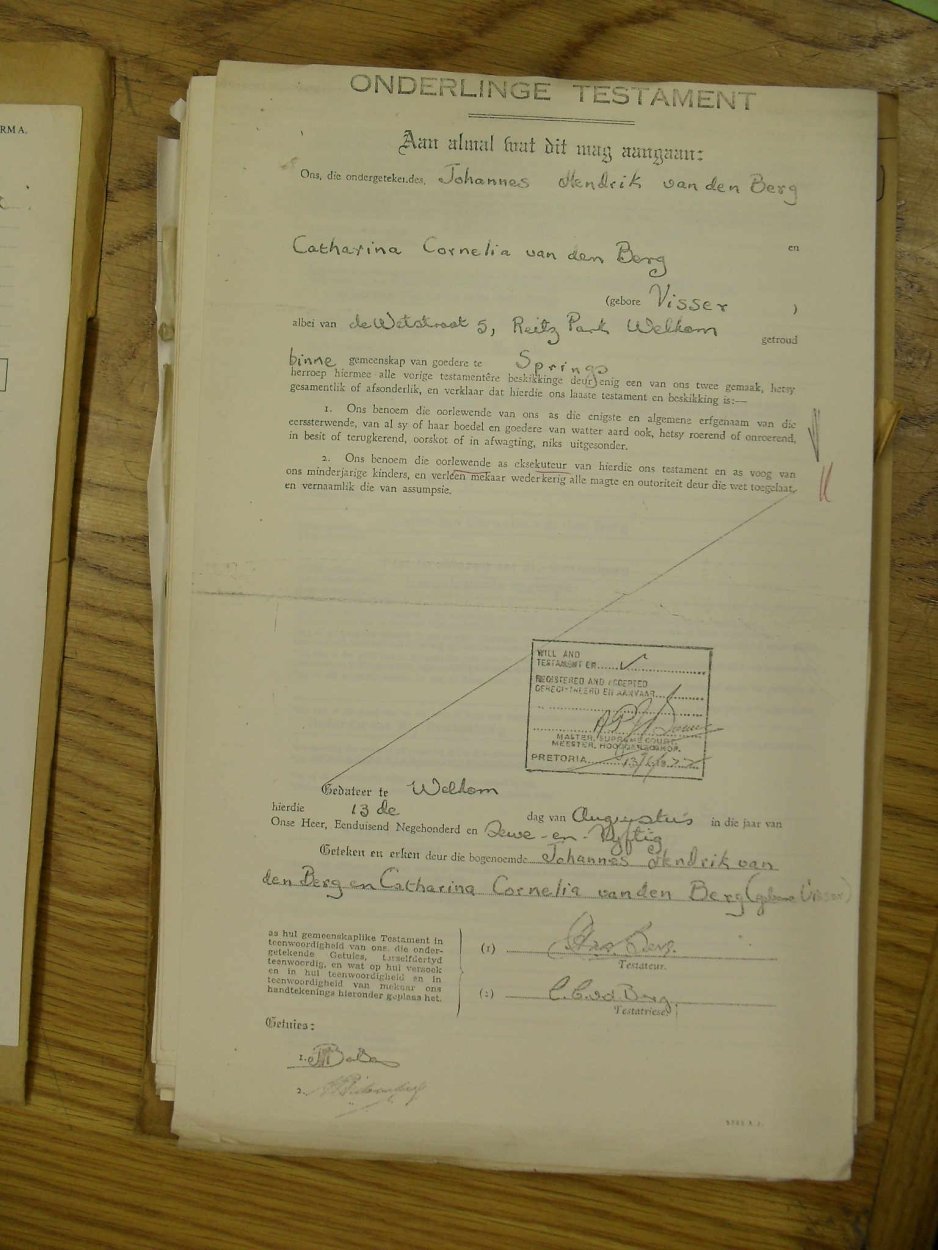 RMA.
ONDERLINGE TESTAMENT
Aan almal wat dit mag aangaan:
Ons, die ondergetekendes, Johannes Hendrik van den Berg
en
Catharina Cornelia van den Berg
(gebore Visser )
albei van de Wetstraat 5, Reitz Park Welkom
getroud
binne gemeenskap van goedere te Springs
herroep hiermee alle vorige testamentêre beskikkinge deur enig een van ons twee gemaak, hetsy
gesamentlik of afsonderlik, en verklaar dat hierdie ons laaste testament en beskikking is:—
1. Ons benoem die oorlewende van ons as die enigste en algemene erfgenaam van die
eerssterwende, van al sy of haar boedel en goedere van watter aard ook, hetsy roerend of onroerend,
in besit of terugkerend, oorskot of in afwagting, niks uitgesonder.
2. Ons benoem die oorlewende as eksekuteur van hierdie ons testament en as voog van
ons minderjarige kinders, en verleen mekaar wederkerig alle magte en outoriteit deur die wet toegelaat,
en vernaamlik die van assumpsie.
WILL AND
TESTAMENT EN
REGISTERED AND ACCEPTED
GEREGISTREERD EN AANVAAR
MASTER, SUPREME COURT,
MEESTER, HOOGGEREGSHOF.
PRETORIA
Gedateer te Welkom
hierdie 13 de dag van Augustus in die jaar van
Onse Heer, Eenduisend Negehonderd en Sewe-en-Vyftig
Geteken en erken deur die bogenoemde Johannes Hendrik van
den Berg en Catharina Cornelia van den Berg (gebore Visser)
as hul gemeenskaplike Testament in
teenwoordigheid van ons, die onder-
getekende Getuies, teselfdertyd
teenwoordig, en wat op hul versoek
en in hul teenwoordigheid en in
teenwoordigheid van mekaar ons
handtekenings hieronder geplaas het.
(1)
Testateur.
(2) C. C. vd Berg
Testatriese.
Getuies:
1.
2.